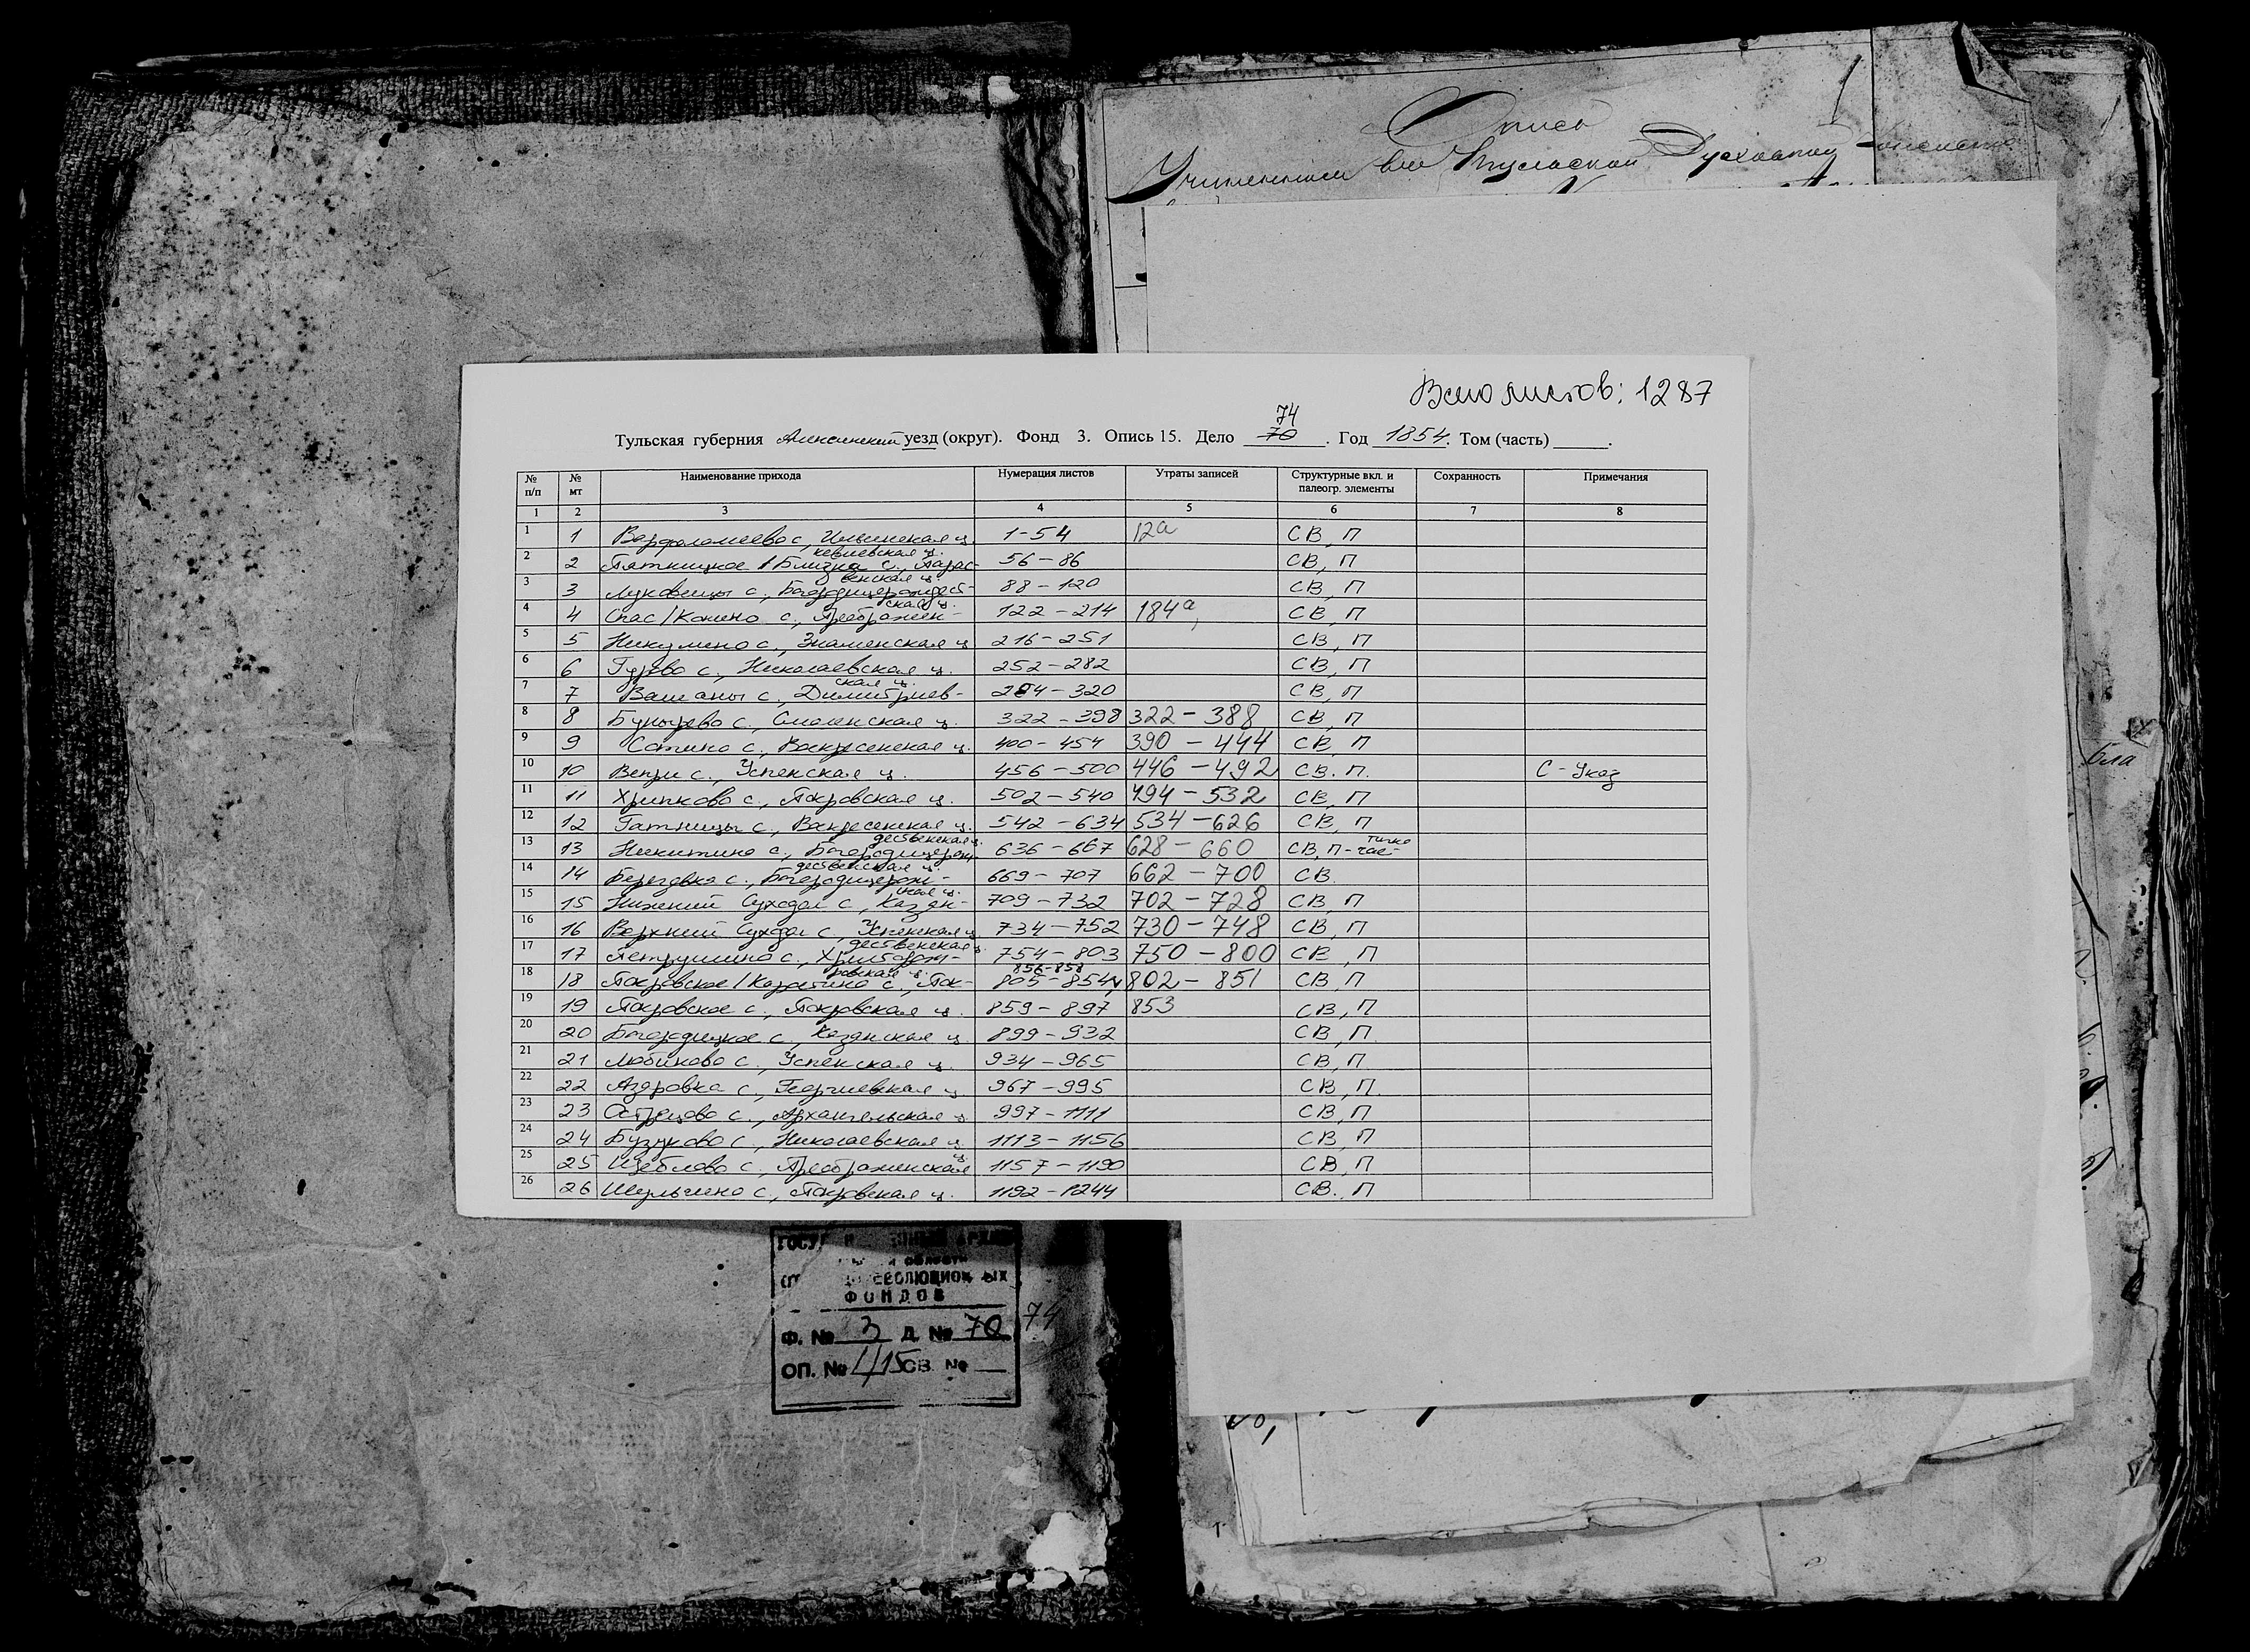 Опись
Учиненная въ Тульской Духовной
Всего листов: 1287
74
Тульская губерния Алексинский уезд (округ). Фонд 3. Опись 15. Дело 70. Год 1854. Том (часть)
№ п/п № мт Наименование прихода Нумерация листов Утраты записей Структурные вкл. и палеогр. элементы Сохранность Примечания
1 2 3 4 5 6 7 8
1 1 Варфоломеево с., Ильинская ц. 1-54 12а СВ, П
2 2 Пятницкое / Близна с., Параскевиевская ц. 56-86 СВ, П
3 3 Луковицы с., Богородицерождественская ц. 88-120 СВ, П
4 4 Спас/Конино с., Преображенская ц. 122-214 184а, СВ, П
5 5 Никулино с., Знаменская ц. 216-251 СВ, П
6 6 Гурево с., Николаевская ц. 252-282 СВ, П
7 7 Вашаны с., Димитриевская ц. 284-320 СВ, П
8 8 Бунырево с., Смоленская ц. 322-398 322-388 СВ, П
9 9 Сотино с., Воскресенская ц. 400-454 390-444 СВ, П
10 10 Вепри с., Успенская ц. 456-500 446-492 СВ. П. С-Указ
11 11 Хрипково с., Покровская ц. 502-540 494-532 СВ, П
12 12 Гатницы с., Воскресенская ц. 542-634 534-626 СВ, П
13 13 Никитино с., Богородицерождественская ц. 636-667 628-660 СВ, П-
14 14 Береговка с., Богородицерождественская ц. 669-707 662-700 СВ.
15 15 Нижний Суходол с., Казанская ц. 709-732 702-728 СВ, П
16 16 Верхний Суходол с., Успенская ц. 734-752 730-748 СВ, П
17 17 Петрушино с., Христорождественская ц. 754-803 750-800 СВ, П
18 18 Покровское/Каретино с., Покровская ц. 805-854, 856-858 802-851 СВ, П
19 19 Покровское с., Покровская ц. 859-897 853 СВ, П
20 20 Богородицкое с., Казанская ц. 899-932 СВ, П
21 21 Любиково с., Успенская ц. 934-965 СВ, П
22 22 Азаровка с., Георгиевская ц. 967-995 СВ, П.
23 23 Острецово с., Архангельская ц. 997-1111 СВ, П
24 24 Бузуково с., Николаевская ц. 1113-1156 СВ, П
25 25 Щеблово с., Преображенская ц. 1157-1190 СВ, П
26 26 Шульгино с., Покровская ц. 1192-1244 СВ., П
ФОНДОВ
Ф. № 3 Д. № 70 74
ОП. № 15 СВ. №